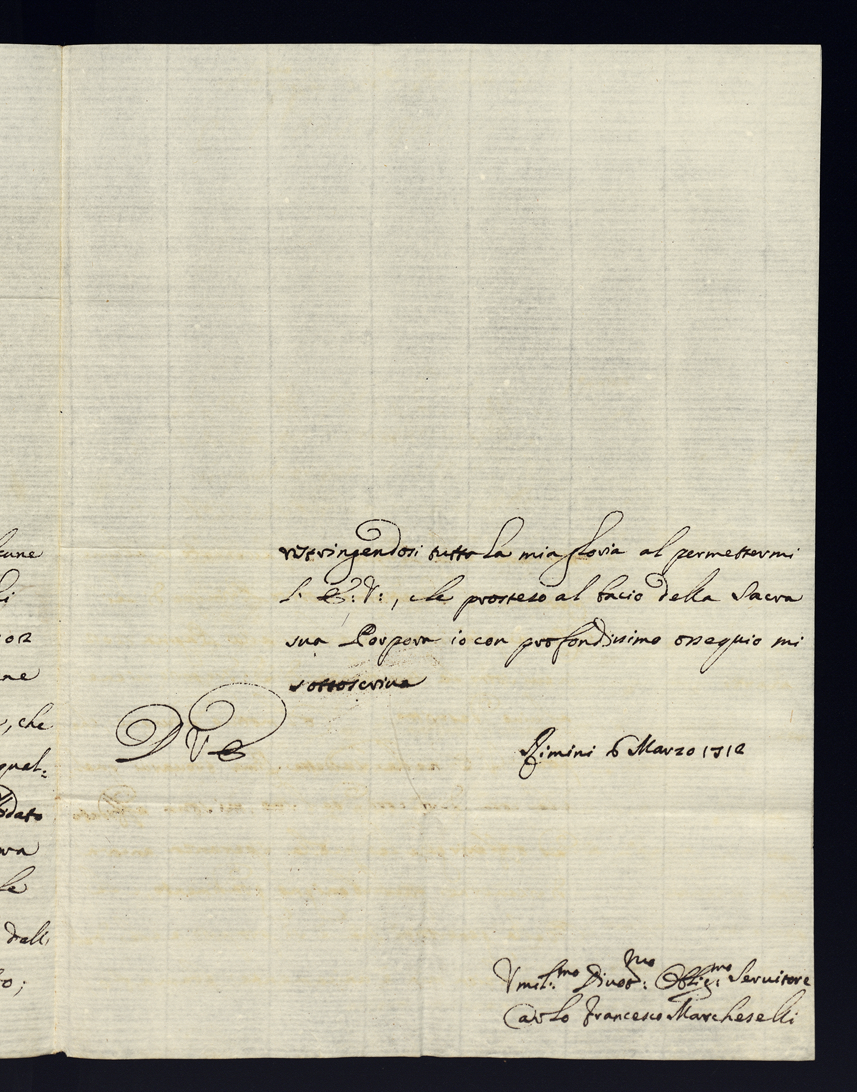 cune
hi
ne
, che
qual=
dato
le
dall
o;
ristringendosi tutta la mia gloria al permettermi
l' E: V:, che prosteso al bacio della Sacra
sua Porpora io con profondissimo ossequio mi
sottoscriva
D V E
Rimini 6 Marzo 1712
Vmil:mo Divot:mo Oblig:mo Servitore
Carlo Francesco Marcheselli